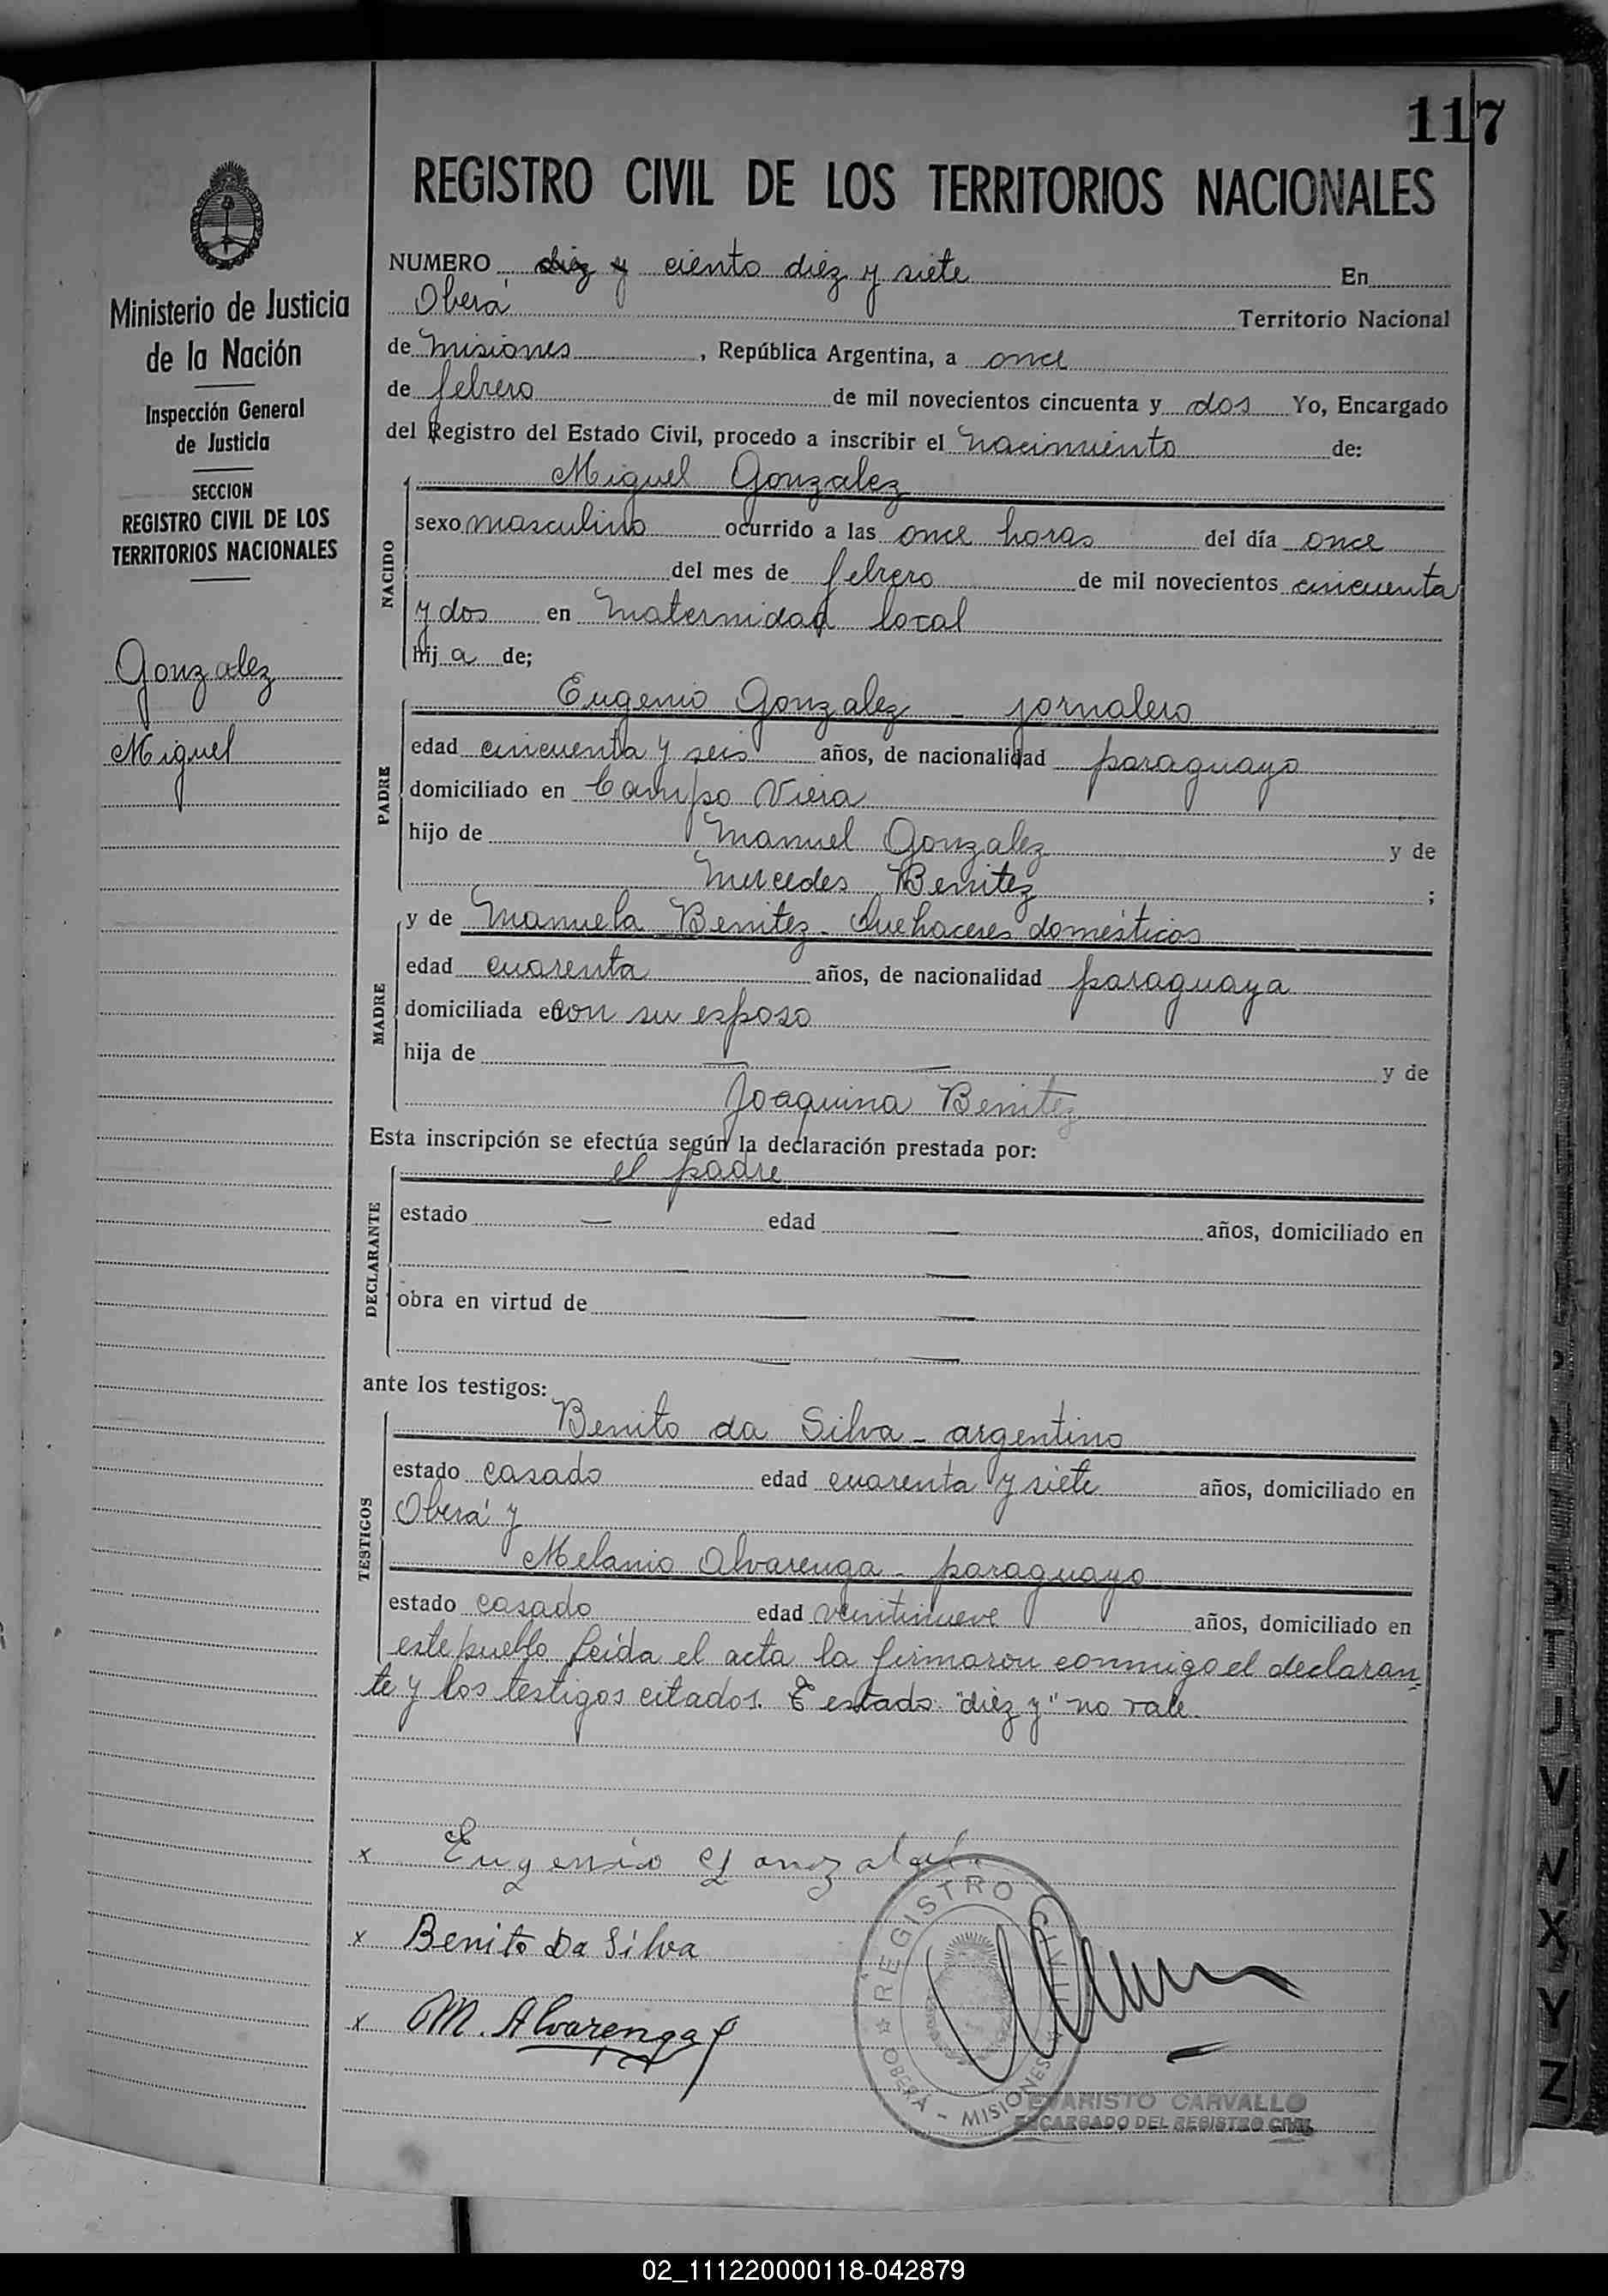 117
REGISTRO CIVIL DE LOS TERRITORIOS NACIONALES
Ministerio de Justicia
de la Nación
Inspección General
de Justicia
SECCION
REGISTRO CIVIL DE LOS
TERRITORIOS NACIONALES
Gonzalez
Miguel
NUMERO diez y ciento diez y siete En
Oberá Territorio Nacional
de Misiones, República Argentina, a once
de febrero de mil novecientos cincuenta y dos Yo, Encargado
del Registro del Estado Civil, procedo a inscribir el Nacimiento de:
NACIDO
Miguel Gonzalez
sexo masculino ocurrido a las once horas del día once
del mes de febrero de mil novecientos cincuenta
y dos en Maternidad local
hij a de;
PADRE
Eugenio Gonzalez - jornalero
edad cincuenta y seis años, de nacionalidad paraguayo
domiciliado en Campo Viera
hijo de Manuel Gonzalez y de
Mercedes Benitez ;
MADRE
y de Manuela Benitez - Quehaceres domésticos
edad cuarenta años, de nacionalidad paraguaya
domiciliada con su esposo
hija de — — y de
Joaquina Benitez
Esta inscripción se efectúa según la declaración prestada por:
DECLARANTE
el padre
estado — edad — años, domiciliado en
— —
obra en virtud de — —
— —
ante los testigos:
TESTIGOS
Benito da Silva - argentino
estado casado edad cuarenta y siete años, domiciliado en
Oberá y
Melanio Alvarenga - paraguayo
estado casado edad veintinueve años, domiciliado en
este pueblo. Leída el acta la firmaron conmigo el declaran=
te y los testigos citados. Testado: "diez y" no vale.
x Eugenio Gonzalez
x Benito Da Silva
x M. Alvarenga
REGISTRO CIVIL
OBERA - MISIONES
EVARISTO CARVALLO
ENCARGADO DEL REGISTRO CIVIL
J
V
W
X
Y
Z
02_111220000118-042879